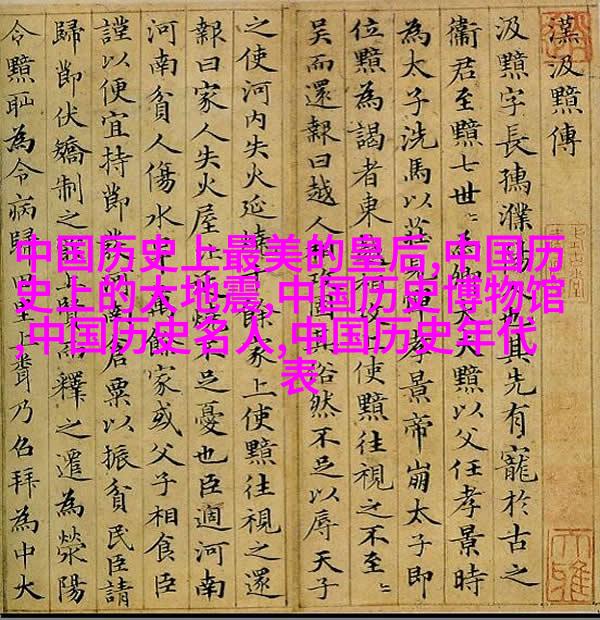 中国历史上最美的皇后,中国历
史上的大地震,中国历史博物馆
,中国历史名人,中国历史年代
表
漢汲黯傳
汲黯字長孺濮也其先有寵於古之
衛君至黯七世〻卿大夫黯以父任孝景時
為太子洗馬以莊見憚孝景帝崩太子即
位黯為謁者東越相攻上使黯往視之不至〻
吳而還報曰越人相攻固其俗然不足以辱天子
之使河内失火延燒千餘家上使黯往視之還
報曰家人失火屋比延燒不足憂也臣過河南
河南貧人傷水旱萬餘家或父子相食臣
謹以便宜持節發河南倉粟以振貧民臣請
歸節伏矯制之罪上賢而釋之遷為滎陽
令黯恥為令病歸田里上聞乃召拜為中大